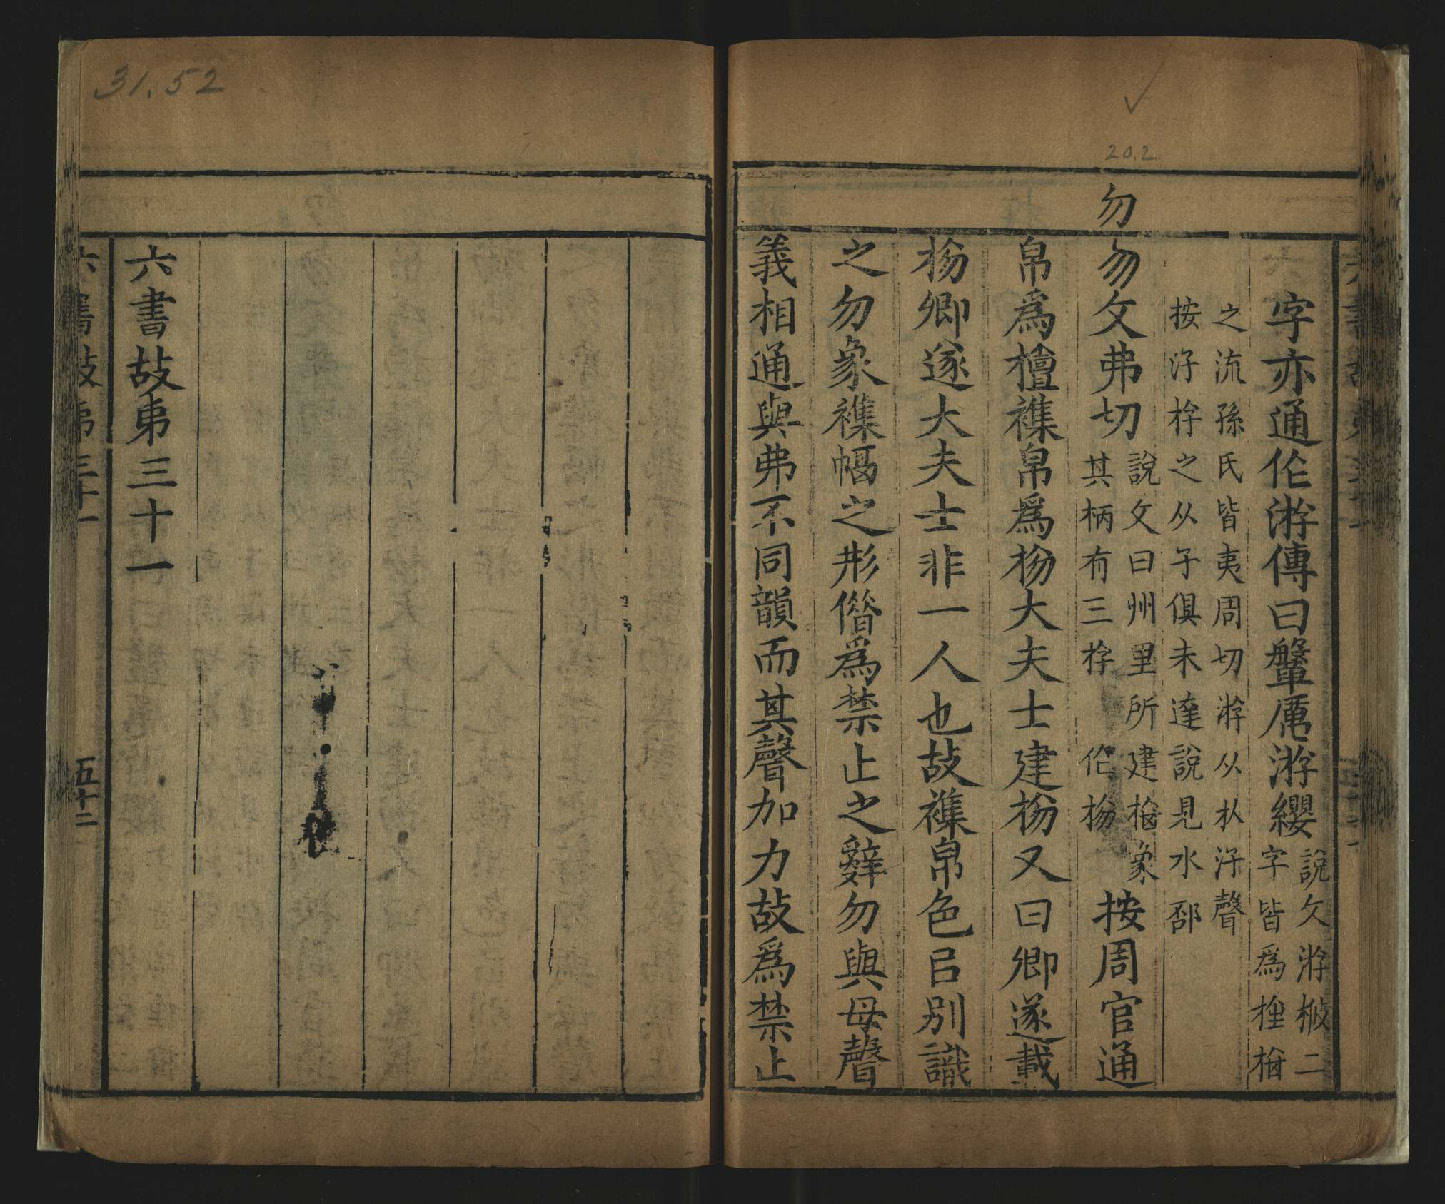 31.52
20.2
字亦通作游傳曰鞶厲游纓說文游㯠二
字皆爲旌㫋
之流孫氏皆夷周切游从㫃汓聲
按汓斿之从子俱未達說見水部
勿
勿文弗切說文曰州里所建㫋象
其柄有三斿 作㫚 按周官通
帛爲旜襍帛爲㫚大夫士建㫚又曰鄉遂載
㫚鄉遂大夫士非一人也故襍帛色㠯別識
之勿象襍幅之形偕爲禁止之辭勿與毋聲
義相通與弗不同韻而其聲加力故爲禁止
六書故弟三十一
六書故弟三十一
五十二